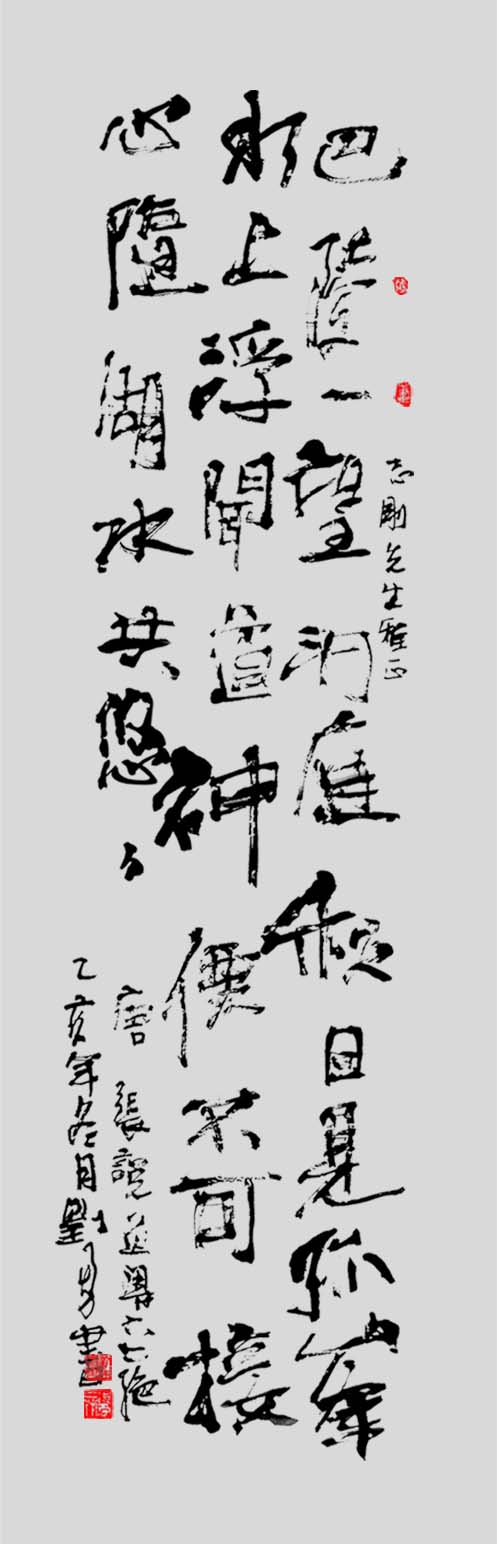 志剛先生雅正
巴陵一望洞庭秋日見孤峯
水上浮聞道神僊不可接
心隨湖水共悠々
唐張說送梁六七絕
乙亥年冬月劉書